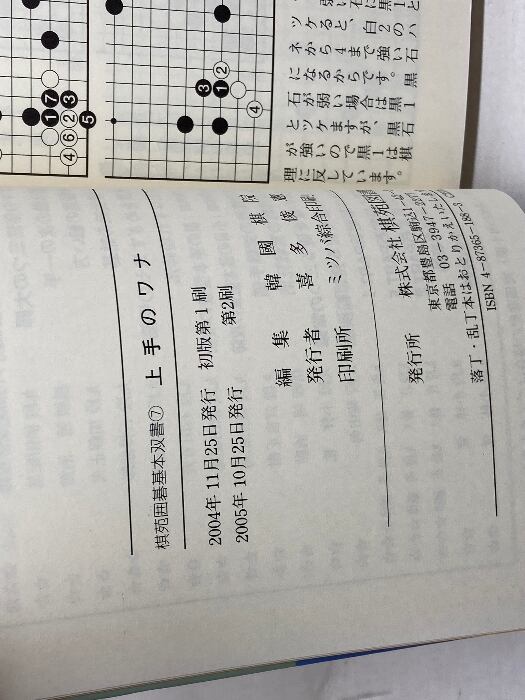 ツケると、白2のハ
ネから4まで強い石
になるからです。黒
石が弱い場合は黒1
とツケますが、黒石
が強いので黒1は棋
理に反しています。
1
7
3
4
6
2
5
2
3
1
4
棋苑囲碁基本双書⑦ 上手のワナ
2004年11月25日発行 初版第1刷
2005年10月25日発行 第2刷
編集 韓國棋
発行者 喜多俊
印刷所 ミツバ綜合印刷
発行所 株式会社 棋苑図書
東京都豊島区駒込1-
電話 03-3947-
落丁・乱丁本はおとりかえいたします
ISBN 4-87365-186-